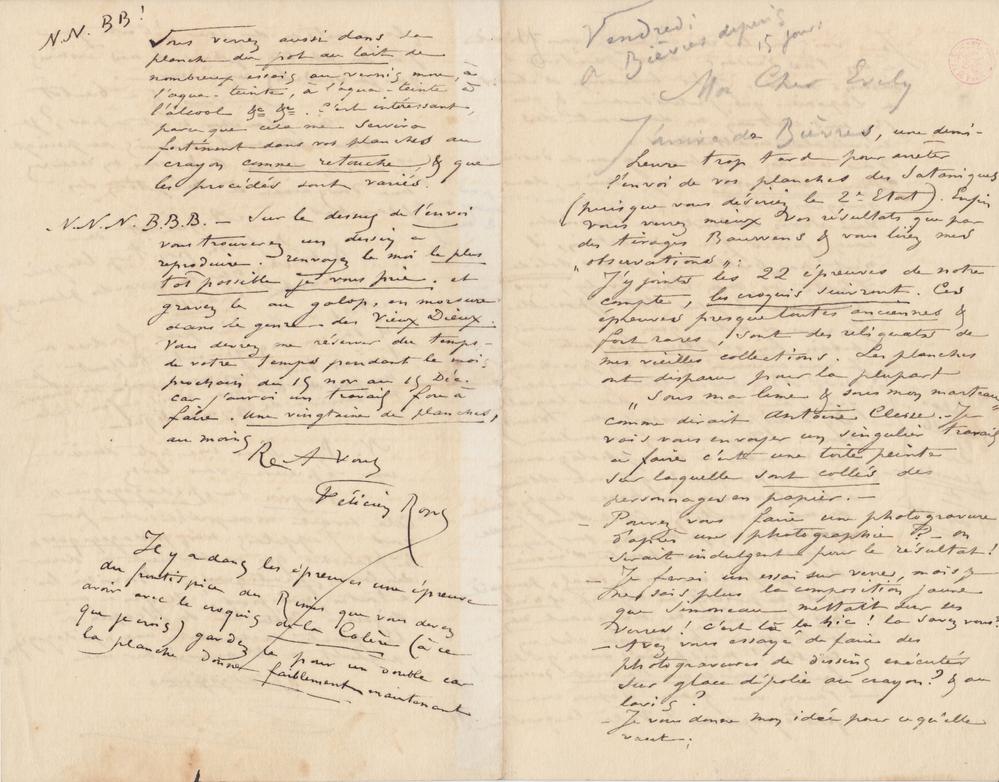 Vendredi
à Bièvres depuis
15 jours
Mon Cher Evely
J'arrive de Bièvres, une demi-
heure trop tard pour arrêter
l'envoi de vos planches des Sataniques
(puisque vous désiriez le 2e Etat). Enfin
vous verrez mieux vos résultats que par
des tirages Bouwens & vous lirez mes
"observations":
J'y joints les 22 épreuves de notre
compte, les croquis suivront. Ces
épreuves presque toutes anciennes &
fort rares, sont des reliquats de
mes vieilles collections. Les planches
ont disparu pour la plupart
"sous ma lime & sous mon marteau"
comme dirait Antoine Clesse. - Je
vais vous envoyer un singulier travail
à faire c'est une toile peinte
sur laquelle sont collés des
personnages en papier. -
- Pouvez vous faire une photogravure
d'après une photographie ?? - on
serait indulgent pour le résultat!
- Je ferai un essai sur verre, mais je
ne sais plus la composition jaune
que Simoneau mettait sur ses
verres! C'est là le hic! la savez vous?
- Avez vous essayé de faire des
photogravures de dessins exécutés
sur glace dépolie au crayon? & au
lavis?
- Je vous donne mon idée pour ce qu'elle
vaut.
N.N. BB!
Vous verrez aussi dans la
planche du pot au lait de
nombreux essais au vernis mou, à
l'aqua-teinte, à l'aqua-teinte à
l'alcool &c &c. C'est intéressant,
parce que cela me servira
fortement dans vos planches au
crayon comme retouche, & que
les procédés sont variés.
N.N.N. B.B.B. - Sur le dessus de l'envoi
vous trouverez un dessin à
reproduire. renvoyez le moi le plus
tôt possible je vous prie. et
gravez le au galop, en morsure
dans le genre des Vieux Dieux.
Vous devrez me réserver du temps -
de votre temps pendant le mois
prochain du 15 nov au 15 Déc.
car j'aurai un travail fou à
faire. une vingtaine de planches,
au moins
Re A Vous
Félicien Rops
Il y a dans les épreuves une épreuve
du frontispice du Rimes que vous devez
avoir avec le croquis de la Colère (à ce
que je crois) gardez le pour un double car
la planche donne faiblement maintenant.